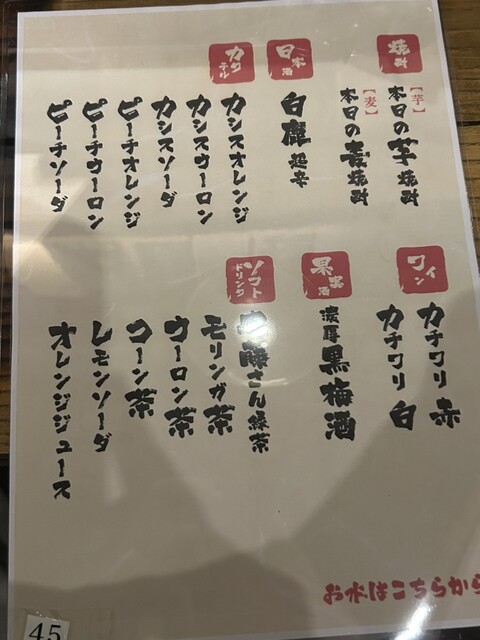 焼酎
【芋】
本日の芋焼酎
【麦】
本日の麦焼酎
日本酒
白鹿 超辛
カクテル
カシスオレンジ
カシスウーロン
カシスソーダ
ピーチオレンジ
ピーチウーロン
ピーチソーダ
ワイン
カチワリ 赤
カチワリ 白
果実酒
濃厚黒梅酒
ソフトドリンク
藤さん緑茶
モリンガ茶
ウーロン茶
コーン茶
レモンソーダ
オレンジジュース
お水はこちらから
45